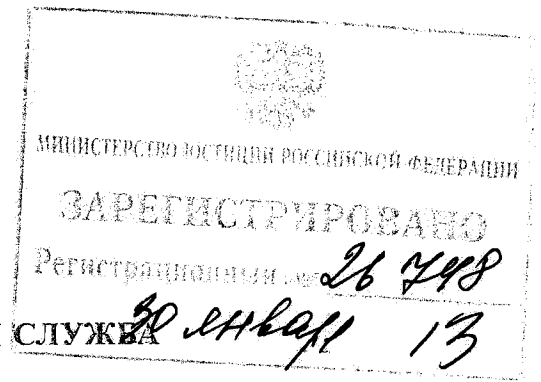 МИНИСТЕРСТВО ЮСТИЦИИ РОССИЙСКОЙ ФЕДЕРАЦИИ
ЗАРЕГИСТРИРОВАНО
Регистрационный № 26748
СЛУЖБА 30 января 13